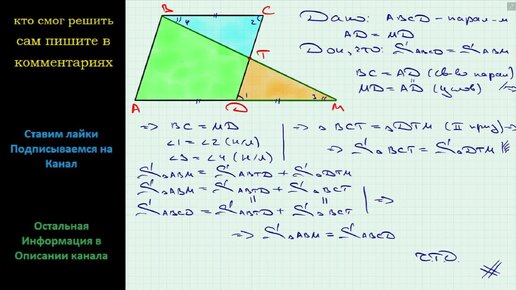 кто смог решить
сам пишите в
комментариях
Ставим лайки
Подписываемся на
Канал
Остальная
Информация в
Описании канала
B
C
4
2
T
1
3
A
D
M
Дано: ABCD - парал-м
AD = MD
Док, что: S ABCD = S ABM
BC = AD (св-во парал)
MD = AD (услов)
=> BC = MD
∠1 = ∠2 (н/л)
∠3 = ∠4 (н/л)
=> △BCT = △DTM (II приз) =>
=> S△BCT = S△DTM
S△ABM = S ABTD + S△DTM
S△ABM = S ABTD + S△BCT
S ABCD = S ABTD + S△BCT
=>
=> S△ABM = S ABCD
Ч.Т.Д.